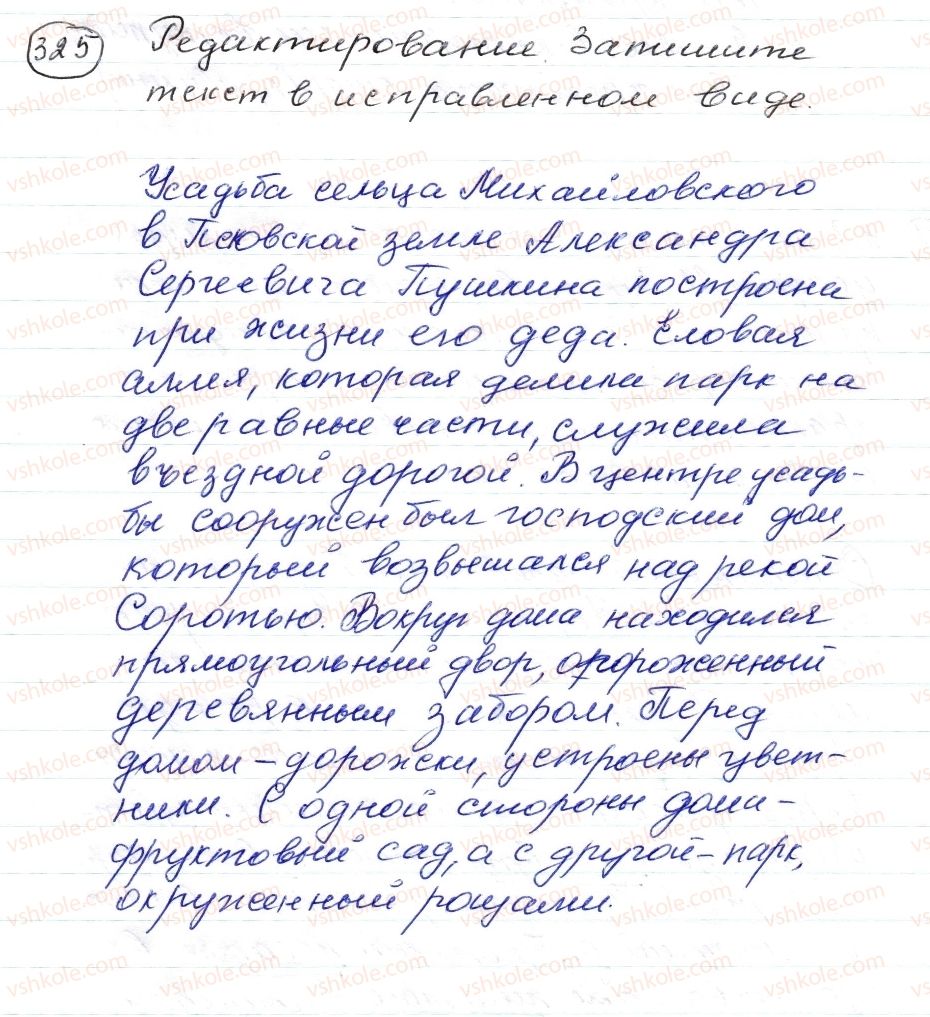 325 Редактирование. Запишите
текст в исправленном виде.
Усадьба сельца Михайловского
в Псковской земле Александра
Сергеевича Пушкина построена
при жизни его деда. Еловая
аллея, которая делила парк на
две равные части, служила
въездной дорогой. В центре усадь-
бы сооружен был господский дом,
который возвышался над рекой
Соротью. Вокруг дома находился
прямоугольный двор, огороженный
деревянным забором. Перед
домом – дорожки, устроены цвет-
ники. С одной стороны дома –
фруктовый сад, а с другой – парк,
окруженный рощами.